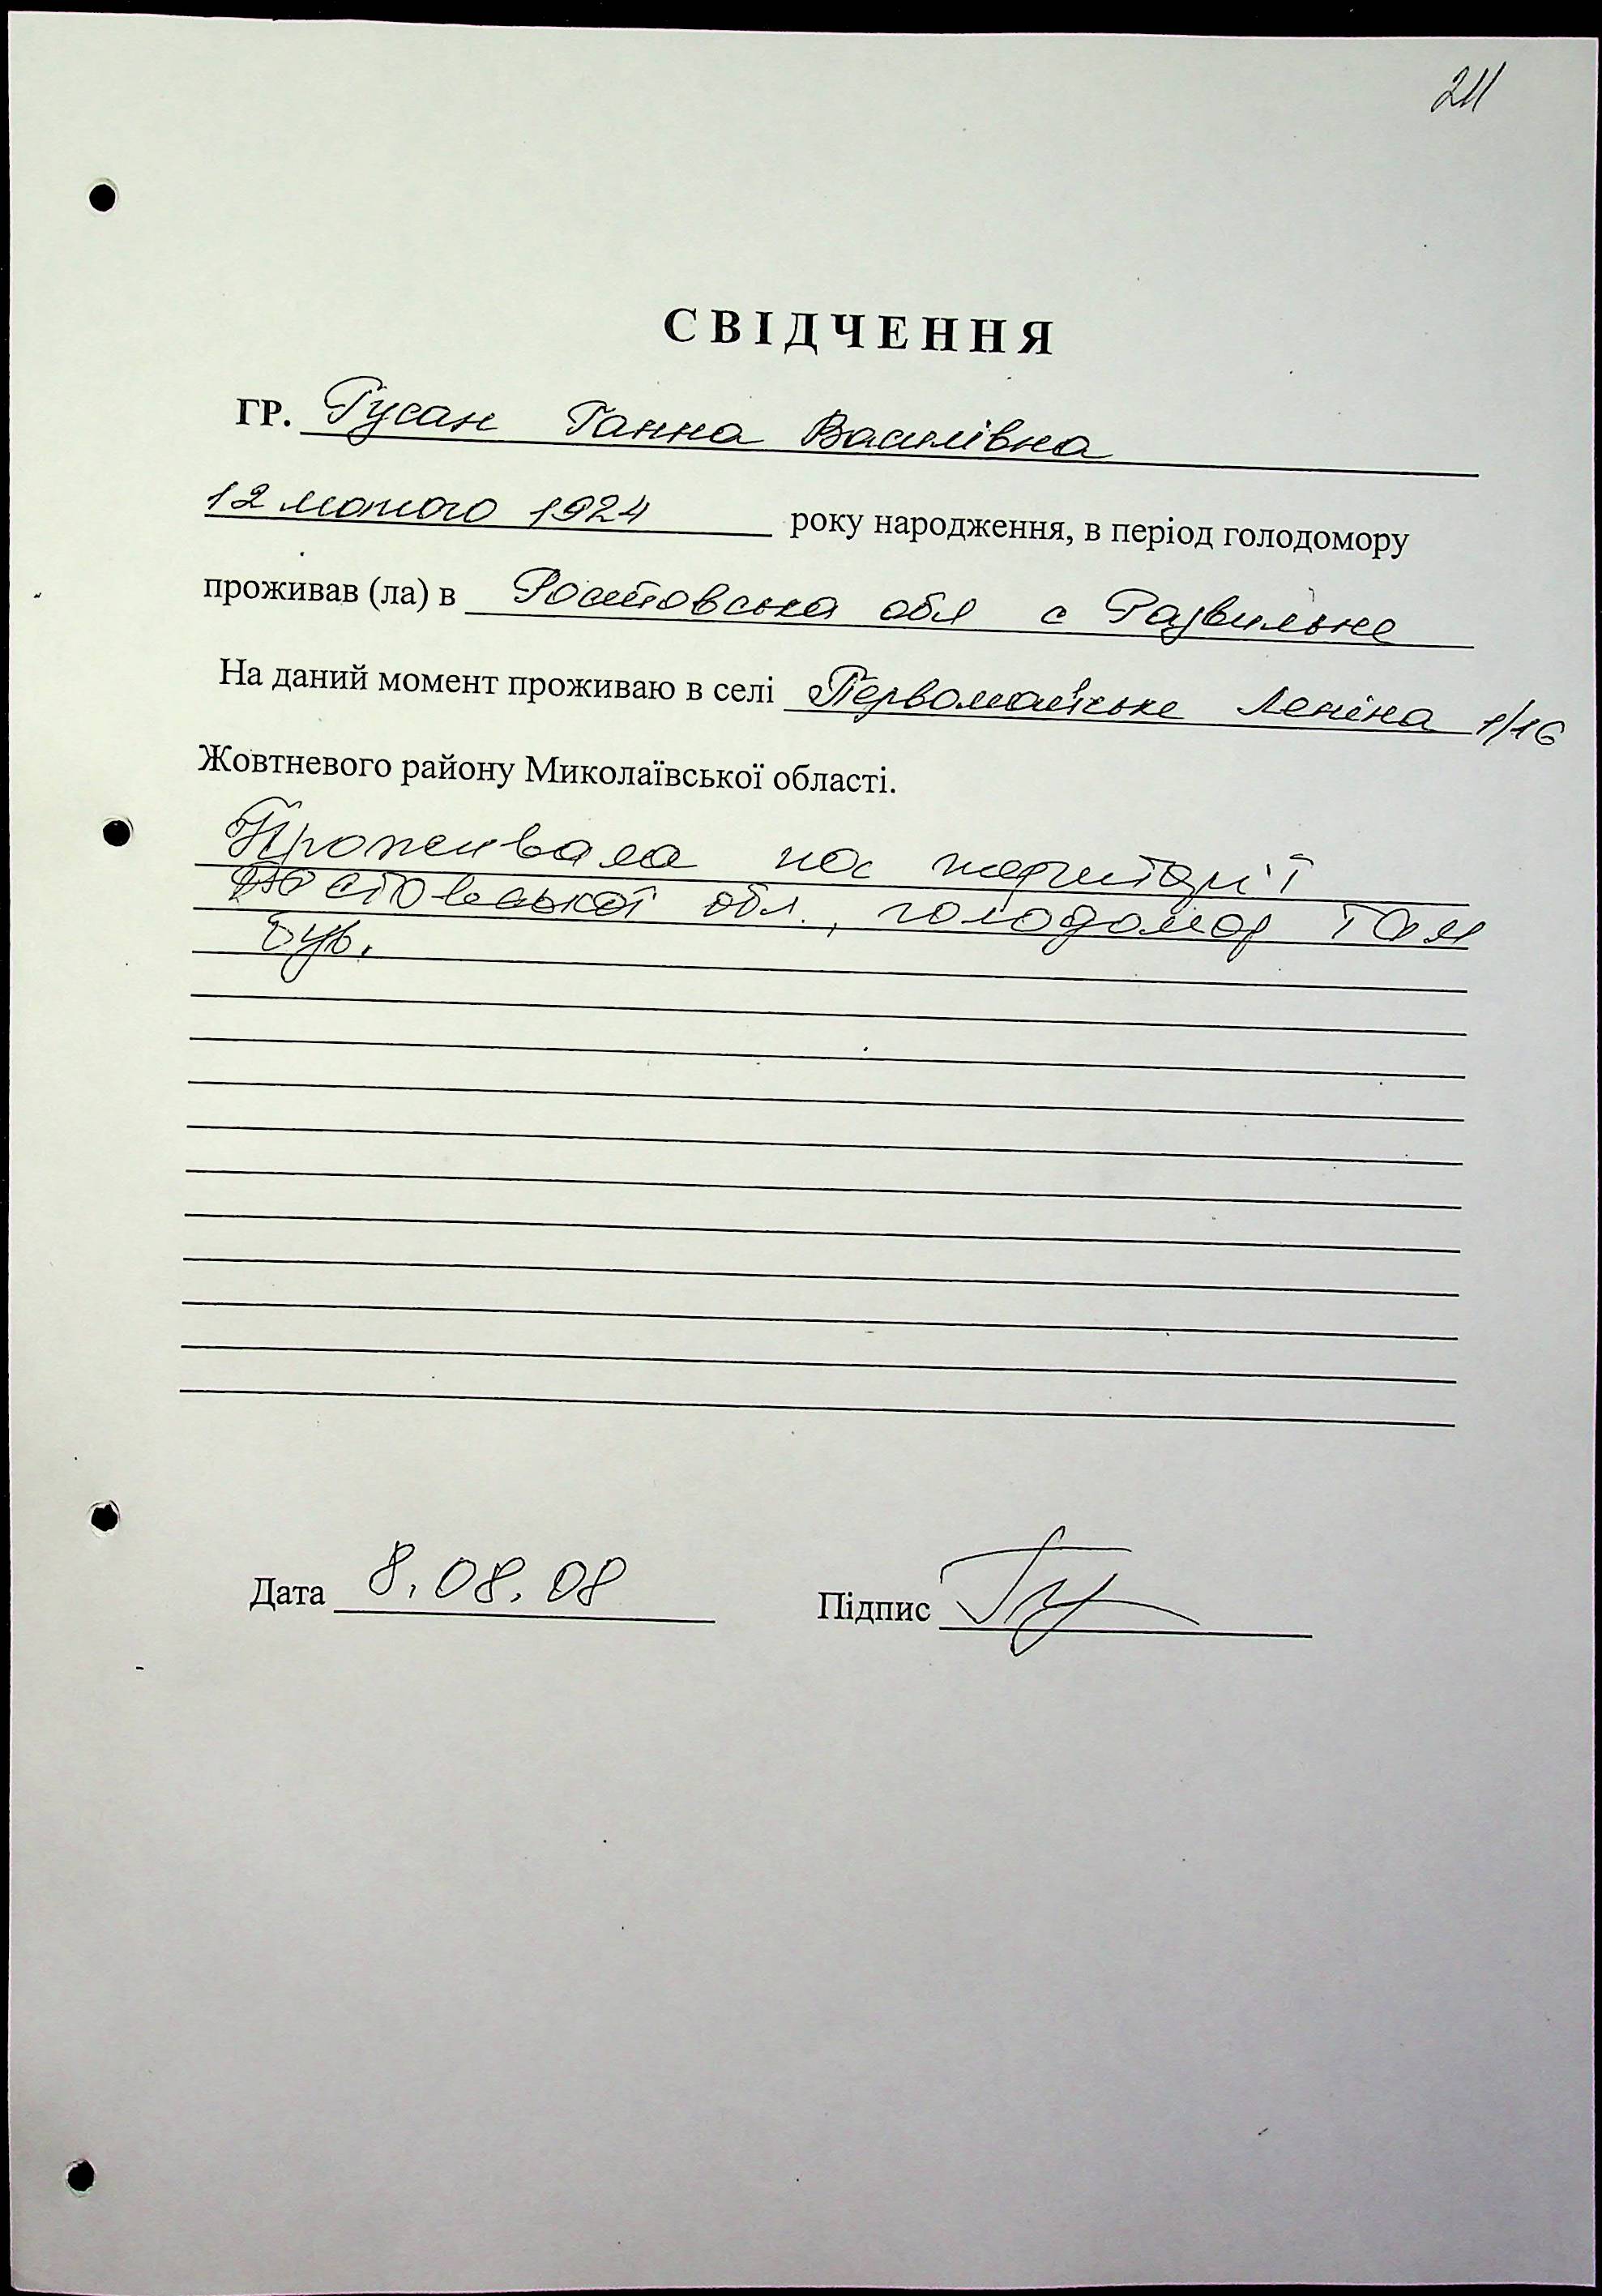 211
СВІДЧЕННЯ
ГР. Гусан Ганна Василівна
12 лютого 1924 року народження, в період голодомору
проживав (ла) в Ростовська обл с Развильне
На даний момент проживаю в селі Первомайське Леніна 1/16
Жовтневого району Миколаївської області.
Проживала на території
Ростовської обл., голодомор там
був.
Дата 8.08.08 Підпис